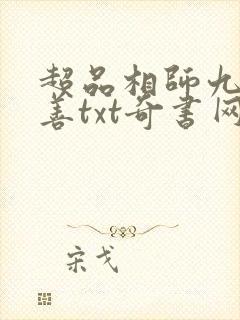 超品相師九
善txt奇書网
宋戈